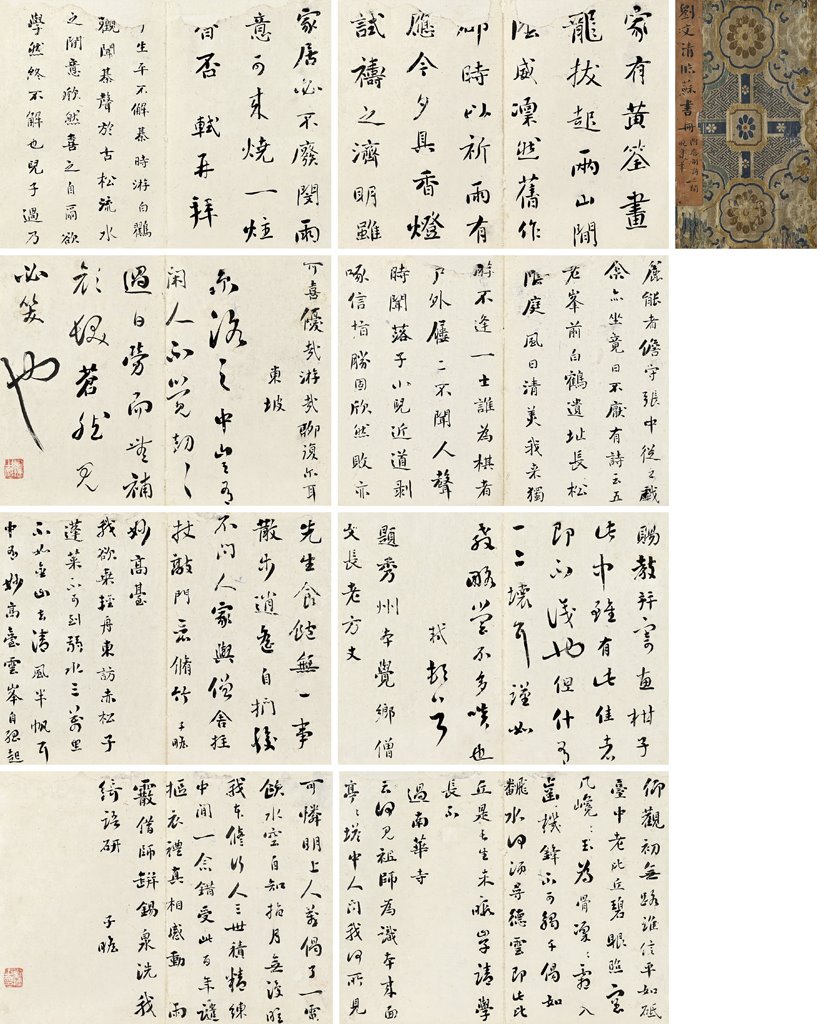 劉文清臨蘇書冊
家有黃筌畫
龍拔起兩山間
陰威凜然舊作
郡時以祈雨有
應今夕具香燈
試禱之濟明雖
家居必不廢閔雨
意可來燒一炷
香否 軾再拜
予生平不解棊時游白鶴
觀聞棊聲於古松流水
之間意欣然喜之自爾欲
學然終不解也兒子過乃
麤能者儋守張中從之戲
余亦坐竟日不厭有詩云五
老峯前白鶴遺址長松
蔭庭風日清美我來獨
游不逢一士誰為棋者
戶外屨二不聞人聲
時聞落子小兒近道剥
啄信指勝固欣然敗亦
可喜優哉游哉聊復爾耳
東坡
閑人不覺
過日勞而無補
顏鬢蒼然見
必笑也
賜教并寄惠柑子
此中雖有此佳者
即不識也但什有
一二壞耳謹如
教略嘗不多啖也
軾頓首
題秀州本覺鄉僧
文長老方丈
先生食飽無一事
散步逍遙自捫腹
不問人家與僧舍拄
杖敲門看脩竹 子瞻
妙高臺
我欲乘輕舟東訪赤松子
蓬萊不可到弱水三萬里
不如金山去清風半帆耳
中有妙高臺雲峯自孤起
仰觀初無路誰信平如砥
臺中老比丘碧眼照窗
几巉巉玉為骨凜凜霜入
齒機鋒不可觸千偈如
翻水何須尋德雲即此比
丘是長生未暇學請學
長不
過南華寺
云何見祖師為識本來面
亭亭塔中人問我何所見
可憐明上人萬偈了一電
飲水空自知指月無復眩
我本修行人三世積精練
中間一念錯受此百年譴
摳衣禮真相感動 雨
霰借師錫泉洗我
綺語硯 子瞻